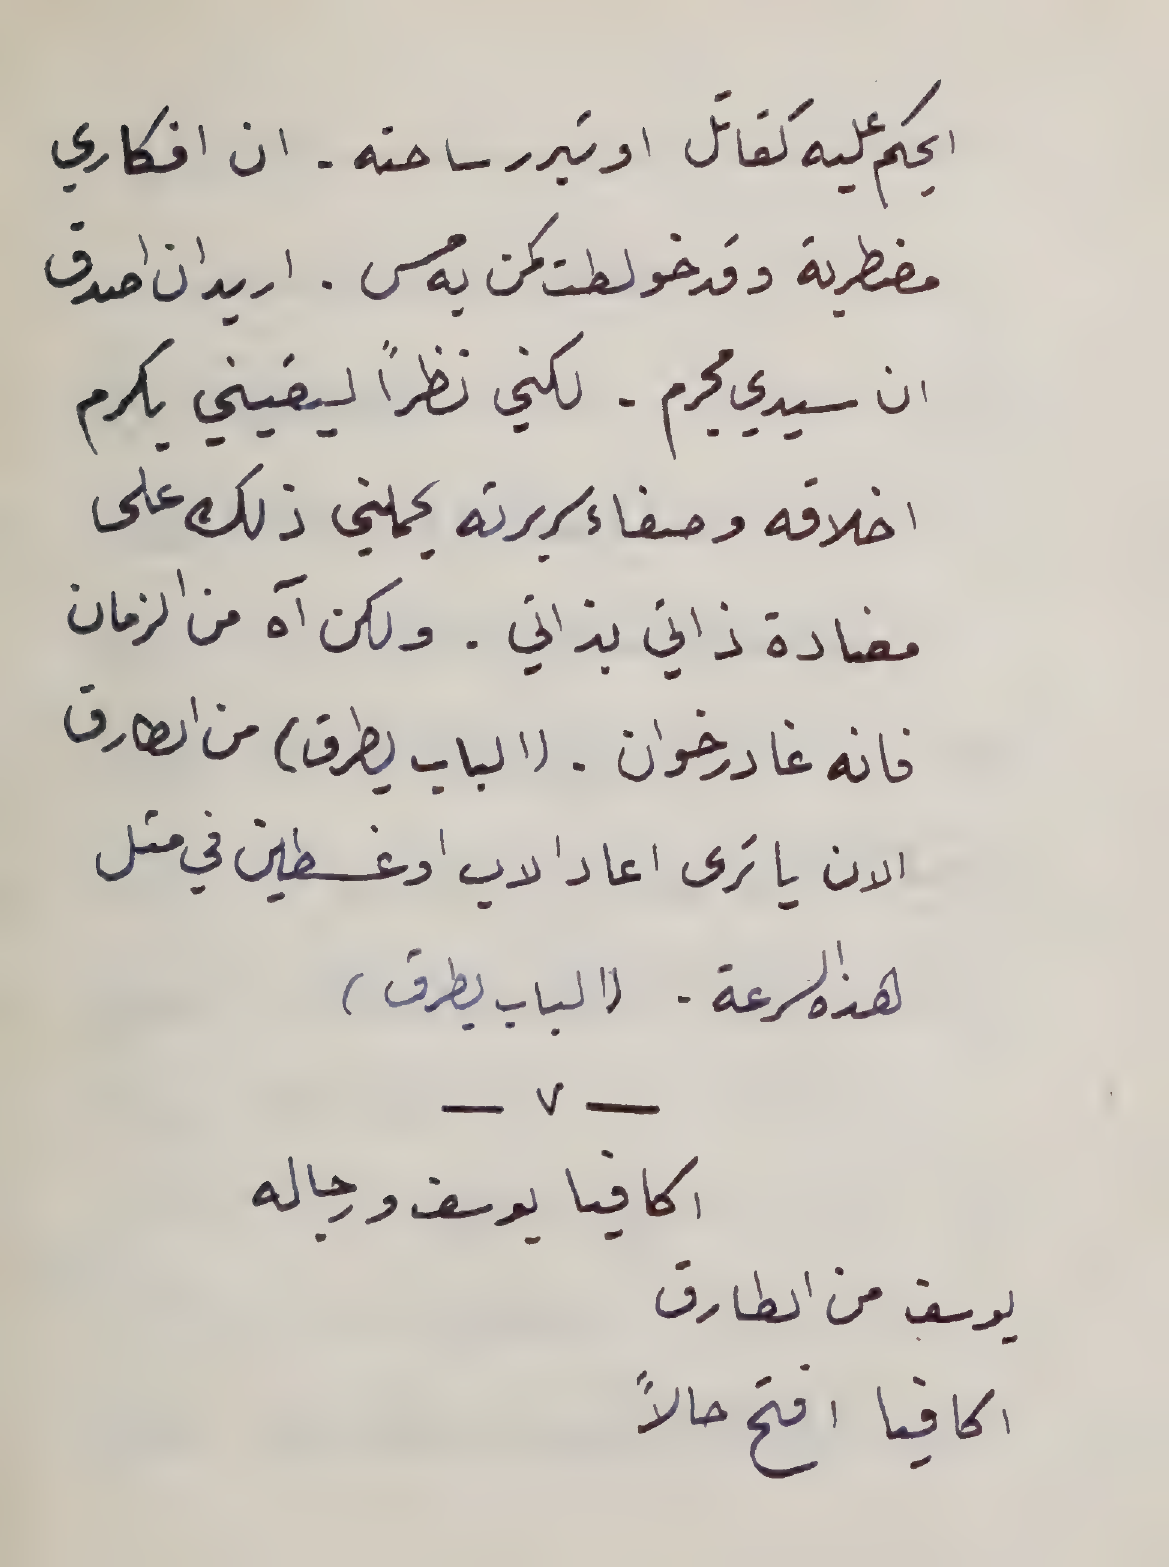 ايحكم عليه كقاتل او تبرر ساحته . ان افكاري
مضطربة وقد خولطت كمن به مس . اريد ان اصدق
ان سيدي مجرم . لكني نظراً ليقيني بكرم
اخلاقه وصفاء سريرته يحملني ذلك على
مضادة ذاتي بذاتي . ولكن آه من الزمان
فانه غادر خوان . (الباب يطرق) من الطارق
الان يا ترى اعاد الاب اوغسطين في مثل
هذه السرعة . (الباب يطرق)
— ٧ —
اكافيا يوسف ورجاله
يوسف من الطارق
اكافيا افتح حالاً